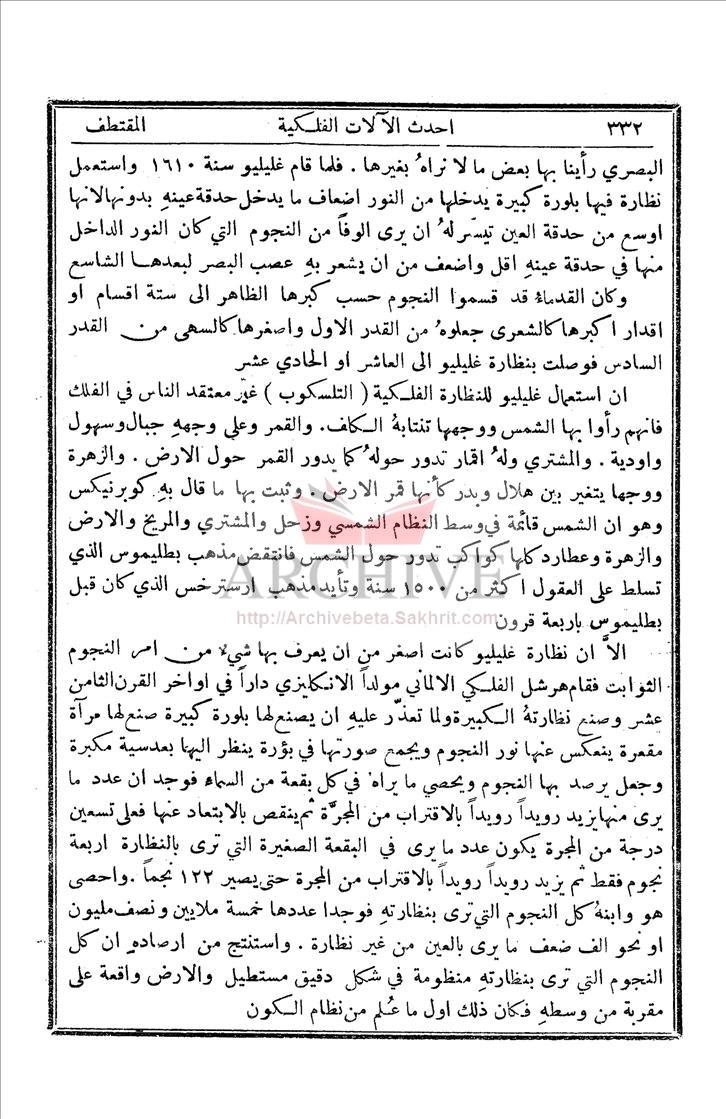 ٣٣٢ احدث الآلات الفلكية المقتطف
البصري رأينا بها بعض ما لا نراهُ بغيرها . فلما قام غليليو سنة ١٦١٠ واستعمل
نظارة فيها بلورة كبيرة يدخلها من النور اضعاف ما يدخل حدقة عينهِ بدونها لانها
اوسع من حدقة العين تيسّر لهُ ان يرى الوفاً من النجوم التي كان النور الداخل
منها في حدقة عينهِ اقل واضعف من ان يشعر بهِ عصب البصر لبعدها الشاسع
وكان القدماءُ قد قسموا النجوم حسب كبرها الظاهر الى ستة اقسام او
اقدار اكبرها كالشعرى جعلوهُ من القدر الاول واصغرها كالسهى من القدر
السادس فوصلت بنظارة غليليو الى العاشر او الحادي عشر
ان استعمال غليليو للنظارة الفلكية ( التلسكوب ) غيّر معتقد الناس في الفلك
فانهم رأوا بها الشمس ووجهها تنتابهُ الكلف . والقمر وعلى وجههِ جبال وسهول
واودية . والمشتري ولهُ اقمار تدور حولهُ كما يدور القمر حول الارض . والزهرة
ووجها يتغير بين هلال وبدر كأنها قمر الارض . وثبت بها ما قال بهِ كوبرنيكس
وهو ان الشمس قائمة في وسط النظام الشمسي وزحل والمشتري والمريخ والارض
والزهرة وعطارد كلها كواكب تدور حول الشمس فانتقض مذهب بطليموس الذي
تسلط على العقول اكثر من ١٥٠٠ سنة وتأيد مذهب ارسترخس الذي كان قبل
بطليموس باربعة قرون
ARCHIVE
http://Archivebeta.Sakhrit.com
الاَّ ان نظارة غليليو كانت اصغر من ان يعرف بها شيءٌ من امر النجوم
الثوابت فقام هرشل الفلكي الالماني مولداً الانكليزي داراً في اواخر القرن الثامن
عشر وصنع نظارتهُ الكبيرة ولما تعذّر عليهِ ان يصنع لها بلورة كبيرة صنع لها مرآة
مقعرة ينعكس عنها نور النجوم ويجمع صورتها في بؤرة ينظر اليها بعدسية مكبرة
وجعل يرصد بها النجوم ويحصي ما يراهُ في كل بقعة من السماء فوجد ان عدد ما
يرى منها يزيد رويداً رويداً بالاقتراب من المجرَّة ثم ينقص بالابتعاد عنها فعلى تسعين
درجة من المجرة يكون عدد ما يرى في البقعة الصغيرة التي ترى بالنظارة اربعة
نجوم فقط ثم يزيد رويداً رويداً بالاقتراب من المجرة حتى يصير ١٢٢ نجماً . واحصى
هو وابنهُ كل النجوم التي ترى بنظارتهِ فوجدا عددها خمسة ملايين ونصف مليون
او نحو الف ضعف ما يرى بالعين من غير نظارة . واستنتج من ارصادهِ ان كل
النجوم التي ترى بنظارتهِ منظومة في شكل دقيق مستطيل والارض واقعة على
مقربة من وسطهِ فكان ذلك اول ما عُلم من نظام الكون